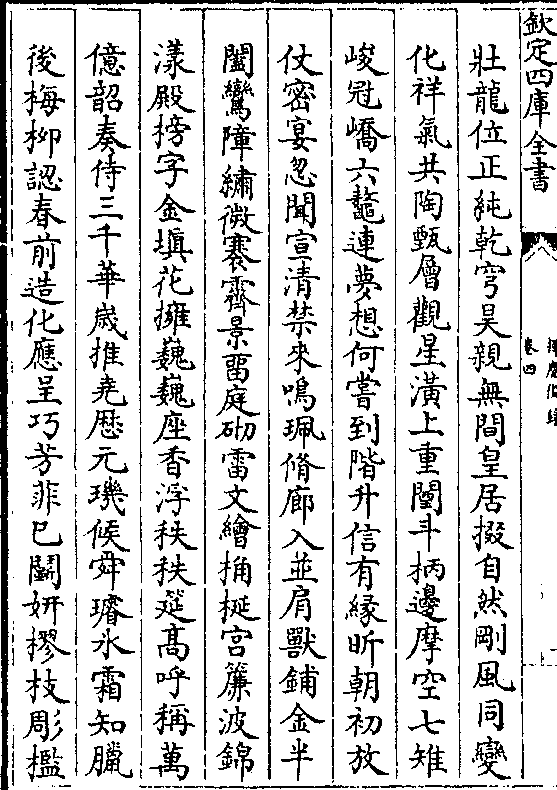 欽定四庫全書
卷四
壯龍位正純乾穹昊親無間皇居掇自然剛風同變
化祥氣共陶甄層觀星潢上重闉斗柄邊摩空七雉
峻冠嶠六鼇連夢想何嘗到階升信有緣昕朝初放
仗密宴忽聞宣清禁來鳴珮脩廊入並肩獸鋪金半
闔鸞障繡微褰霽景留庭砌雷文繪桷梴宮簾波錦
漾殿榜字金塡花擁巍巍座香浮秩秩筵髙呼稱萬
億韶奏侍三千華嵗推堯厯元璣候舜璿氷霜知臘
後梅柳認春前造化應呈巧芳菲已鬭妍樛枝彫檻